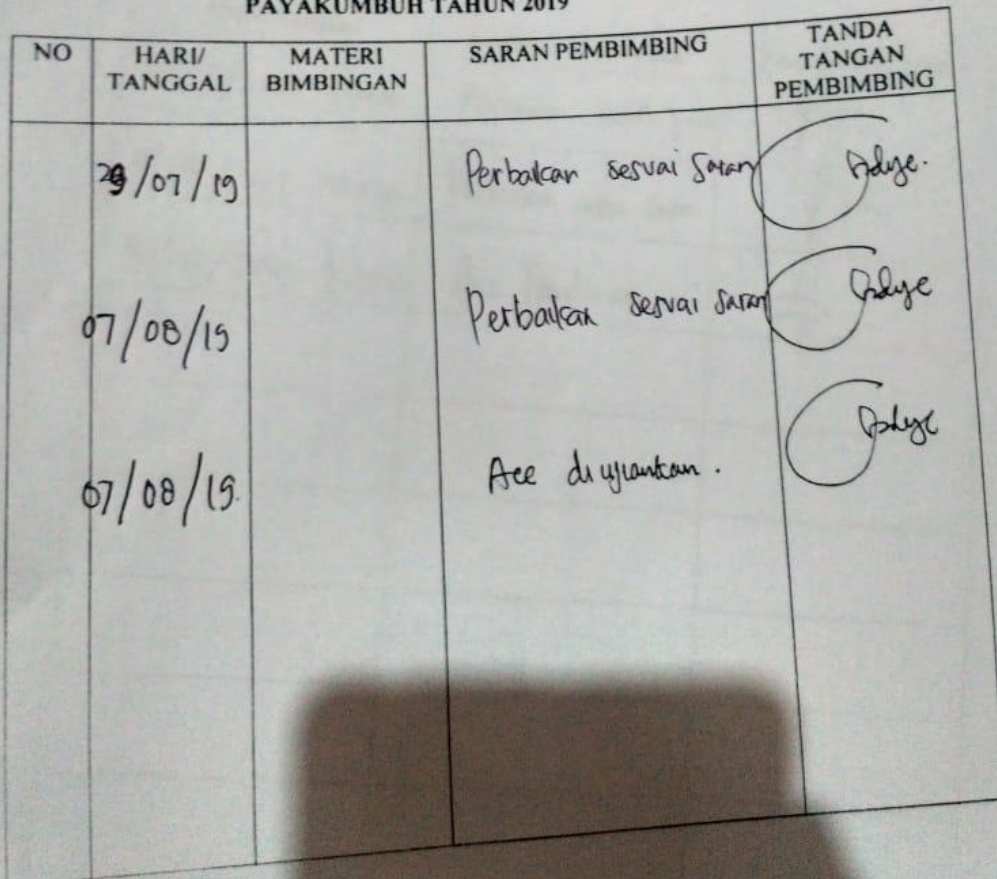 PAYAKUMBUH TAHUN 2019
NO HARI/ TANGGAL MATERI BIMBINGAN SARAN PEMBIMBING TANDA TANGAN PEMBIMBING
29/07/19 Perbaikan sesuai Saran
07/08/19 Perbaikan sesuai Saran
07/08/19. Acc diujiankan.